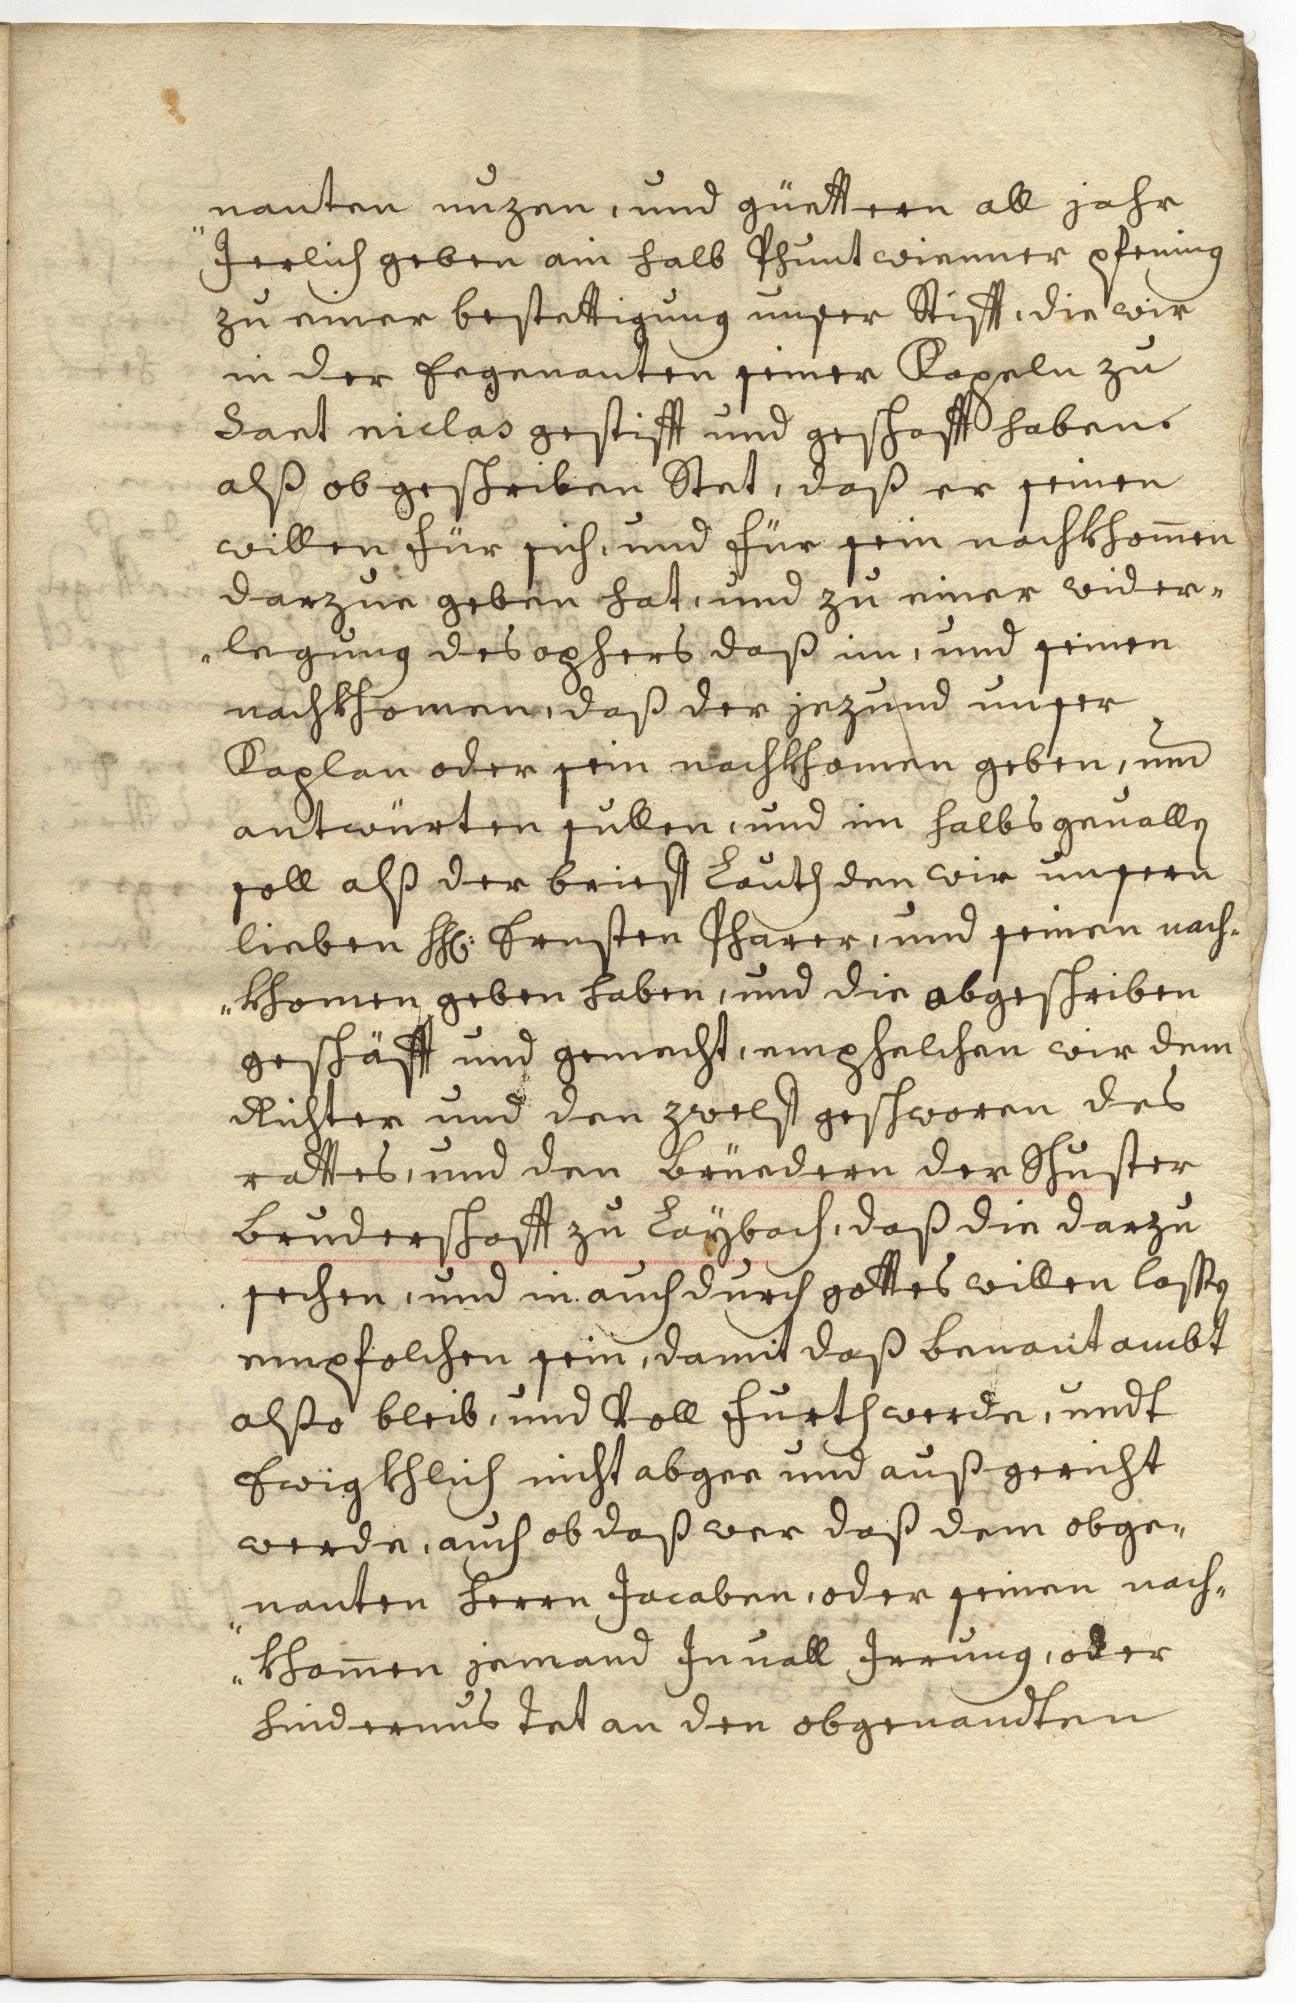 nanten nuzen, und güettern all jahr
Jerlich geben ain halb Phunt wienner pfening
zu einer bestettigung unser Stifft, die wir
in der Ergenanten seiner Kapeln zu
Sant niclas gestifft und geschafft haben.
alß obgeschriben Stet, daß er seinen
willen für sich, und für sein nachkhom̄en
darzue geben hat, und zu einer wider-
legung des ophers daß im, und seinen
nachkhomen, daß der jezund unser
Kaplan oder sein nachkhomen geben, und
antwürten sullen, und im halbs geuallen
soll alß der brieff Lauth den wir unsern
lieben H: Ernsten Pharer, und seinen nach-
khomen geben haben, und die obgeschriben
geschäfft und gemecht, emphelchen wir dem
Richter und den zwelff geschworen des
rattes, und den Brüedern der Schuster
Bruderschafft zu Laÿbach, daß die darzu
sechen, und in auch durch gottes willen lassen
empfolchen sein, damit daß benant ambt
also bleib, und Voll furth werde, undt
Ewigkhlich nicht abgee und außgericht
werde, auch ob daß wer daß dem obge-
nanten herrn Jacaben, oder seinen nach-
khom̄en jemand Inuall Irrung, oder
hindernus tet an den obgenandten